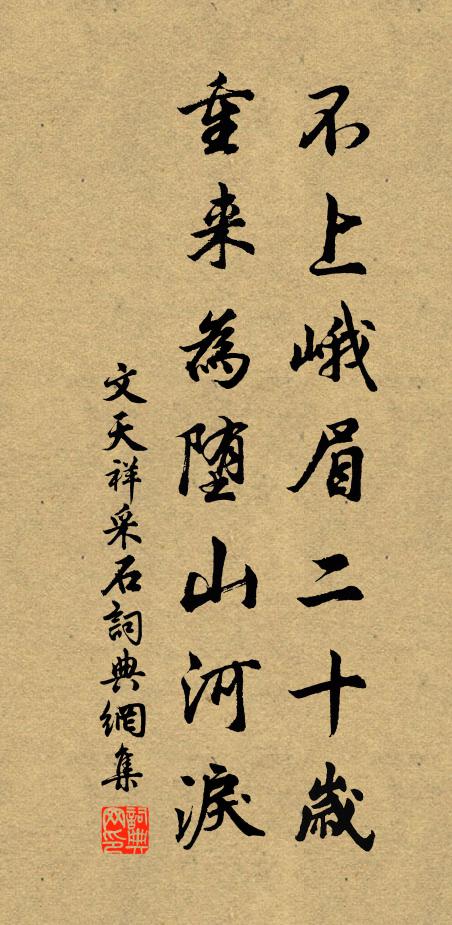 不上峨眉二十歲
重来為堕山河淚
文天祥采石詞典網集
詞典网印